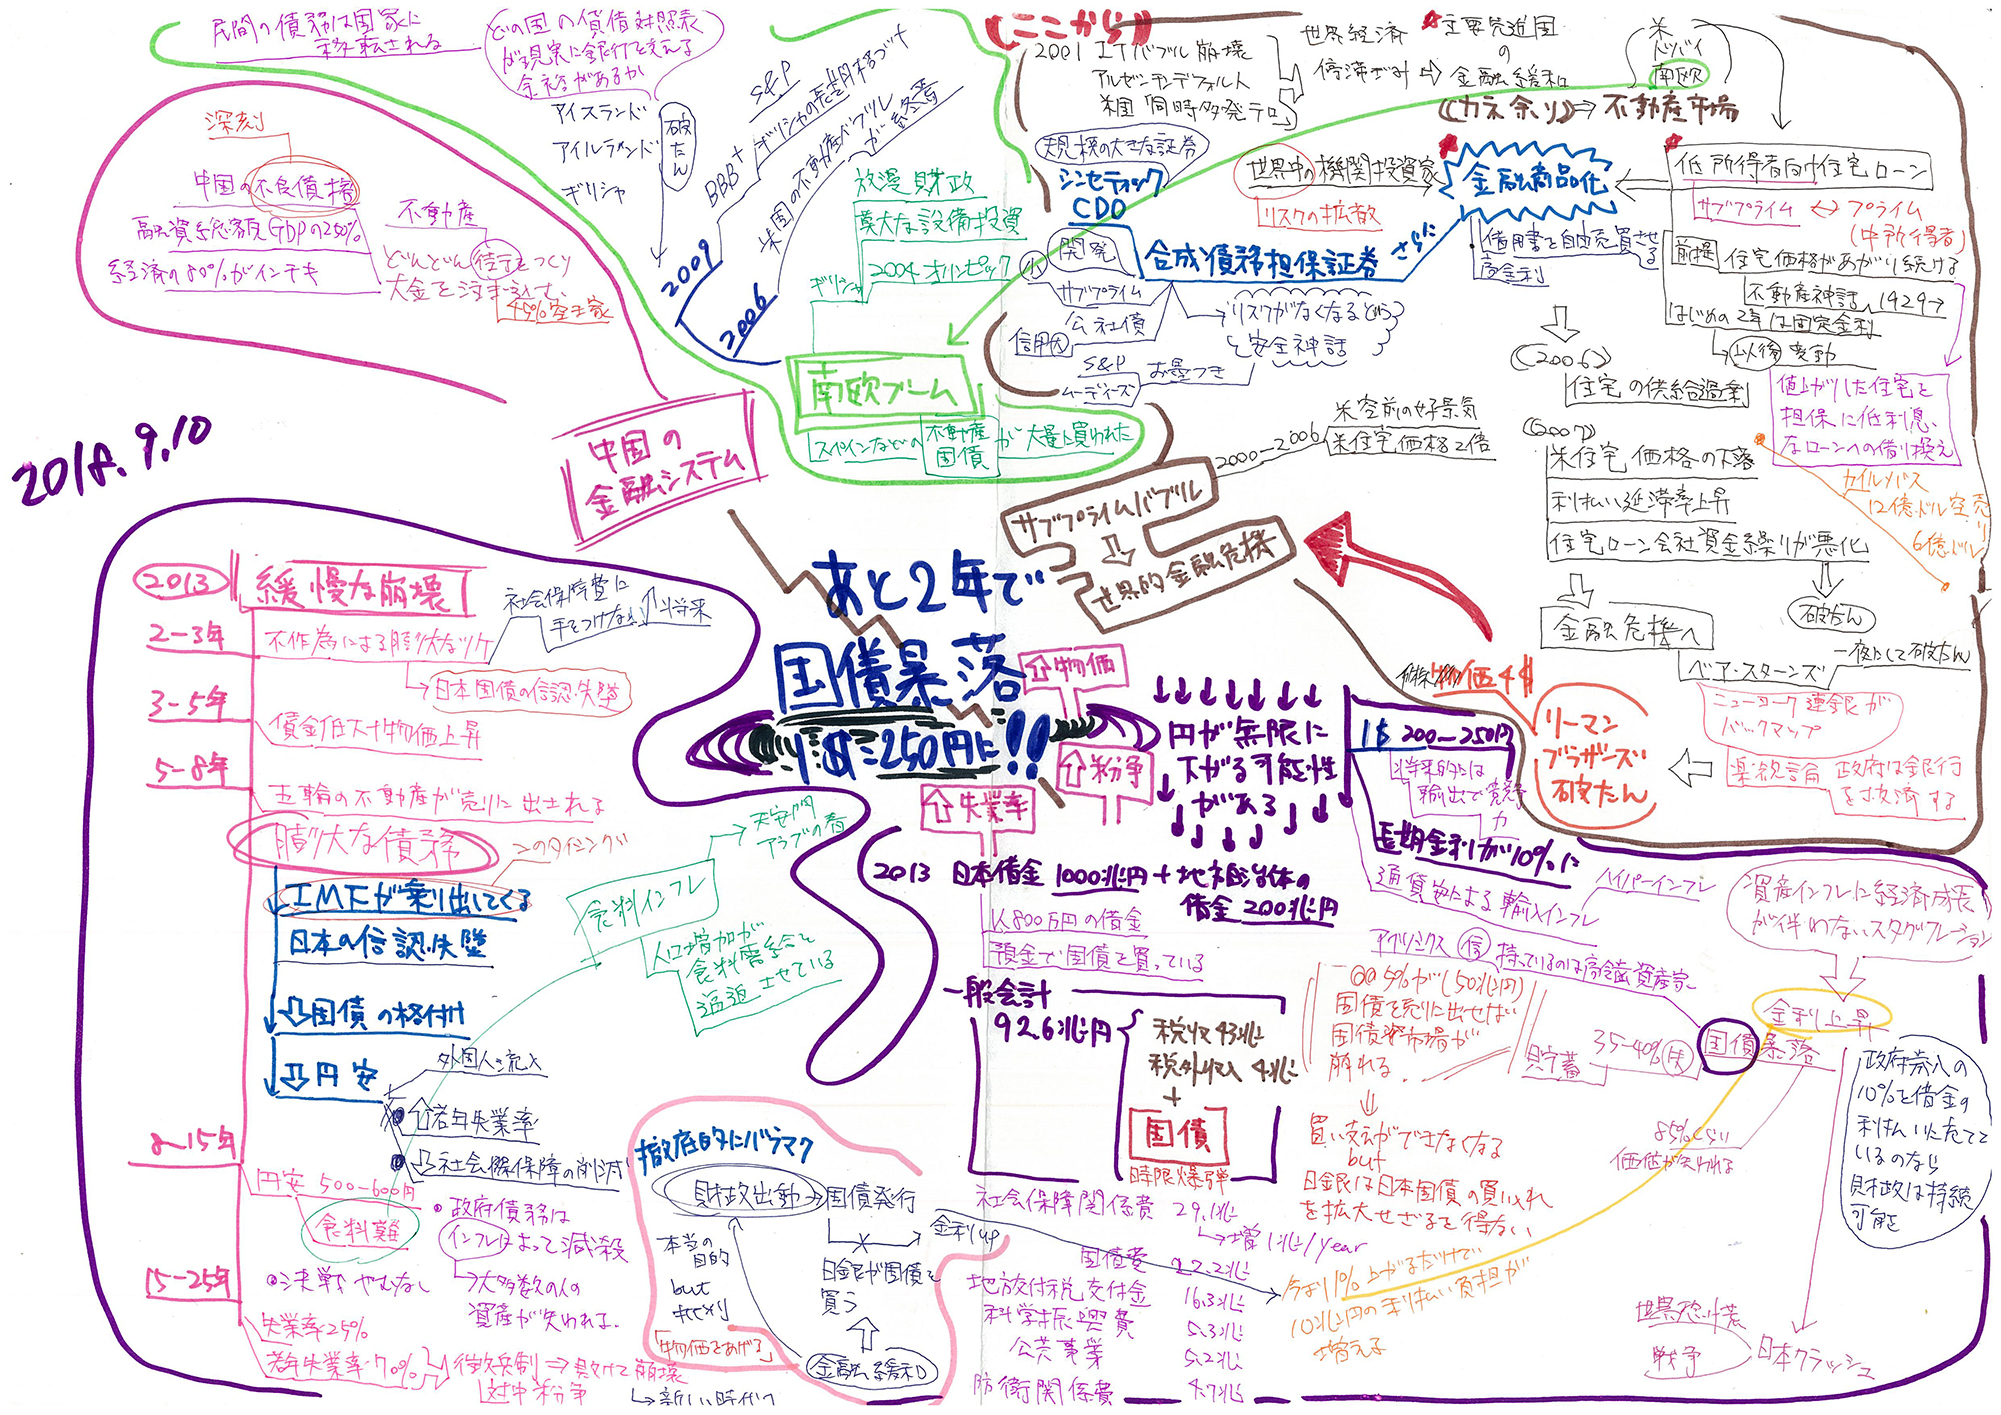 民間の債務は国家に
移転される
どの国の貸借対照表
が現実に銀行を支える
余裕があるか
アイスランド
アイルランド
ギリシャ
破たん
S&P
BBB+
ギリシャの長期格づけ
2009
2006
米国の不動産バブル
が終焉
放漫財政
莫大な設備投資
2004 オリンピック
ギリシャ
南欧ブーム
スペインなどの
不動産
国債
が大量に買われた
深刻
中国の不良債権
融資総額GDPの250%
経済の80%がインチキ
不動産
どんどん街をつくり
大金を注ぎ込む、
45%空き家
中国の
金融システム
2018.9.10
((ここから))
2001 ITバブル崩壊
アルゼンチンデフォルト
米国 同時多発テロ
世界経済
停滞ぎみ
主要先進国
の
金融緩和
米
ドバイ
南欧
(カネ余り)⇒不動産市場
規模の大きな証券
シンセティック
CDO
世界中の機関投資家
リスクの拡散
金融商品化
さらに
合成債務担保証券
開発
サブプライム
公社債
信用
S&P
ムーディーズ
お墨つき
リスクがなくなるという
安全神話
借用書を自由売買させる
高金利
低所得者向け住宅ローン
サブプライム ↔ プライム
(中所得者)
前提
住宅価格があがり続ける
不動産神話
1929→
はじめの2年は固定金利
以後変動
値上がりした住宅を
担保に低利息
なローンへの借り換え
(2006)
住宅の供給過剰
(2007)
米住宅価格の下落
利払い延滞率上昇
住宅ローン会社資金繰りが悪化
カイルバス
12億ドル空売り
6億ドル
破たん
金融危機へ
ベアースターンズ
一夜にして破たん
ニューヨーク連銀が
バックアップ
楽観論
政府は銀行
を救済する
リーマン
ブラザーズ
破たん
2000-2006
米空前の好景気
米住宅価格2倍
サブプライムバブル
⇩
世界的金融危機
あと2年で
国債暴落
1$=250円に!!
物価
紛争
失業率
円が無限に
下がる可能性
がある
物価4倍
1$ 200-250円
将来的には
輸出で競争力
長期金利が10%に
通貨安による輸入インフレ
ハイパーインフレ
アベノミクス
持っているのは高齢資産家
貯蓄
35-40%
国債暴落
資産インフレに経済成長
が伴わないスタグフレーション
金利上昇
政府歳入の
10%を借金の
利払いにあてて
いるのなら
財政は持続
可能
85%くらい
価値が失われる
世界恐慌
戦争
日本クラッシュ
2013 日本借金 1000兆円+地方自治体の
借金 200兆円
1人800万円の借金
預金で国債を買っている
一般会計
92.6兆円
税収 43兆
税外収入 4兆
+
国債
時限爆弾
5%が(50兆円)
国債を売りに出せば
国債市場が
崩れる.
買い支えができなくなる
but
日銀は日本国債の買い入れ
を拡大せざるを得ない
社会保障関係費 29.1兆
→増1兆/year
国債費 22.2兆
地方交付税交付金 16.3兆
科学振興費 5.3兆
公共事業 5.2兆
防衛関係費 4.7兆
今より1%上がるだけで
10兆円の利払い負担が
増える
徹底的にバラマク
財政出動
国債発行
金利up
日銀が国債を
買う
金融緩和
本当の
目的
but
「物価をあげる」
2013
緩慢な崩壊
2-3年
不作為による膨大なツケ
社会保障費に
手をつけない
将来
日本国債の信認失墜
3-5年
賃金低下+物価上昇
5-8年
五輪の不動産が売りに出される
膨大な債務
このタイミング
IMFが乗り出してくる
日本の信認失墜
国債の格付け
円安
外国人流入
若年失業率
社会保障の削減
食料インフレ
天安門
アラブの春
人口増加が
食料需給を
逼迫させている
8-15年
円安 500-600円
食料難
15-25年
失業率25%
若年失業率70%
政府債務は
インフレによって減殺
大多数の人の
資産が失われる.
決戦やむなし
徴兵制⇒敗けて崩壊
対中紛争
新しい時代へ